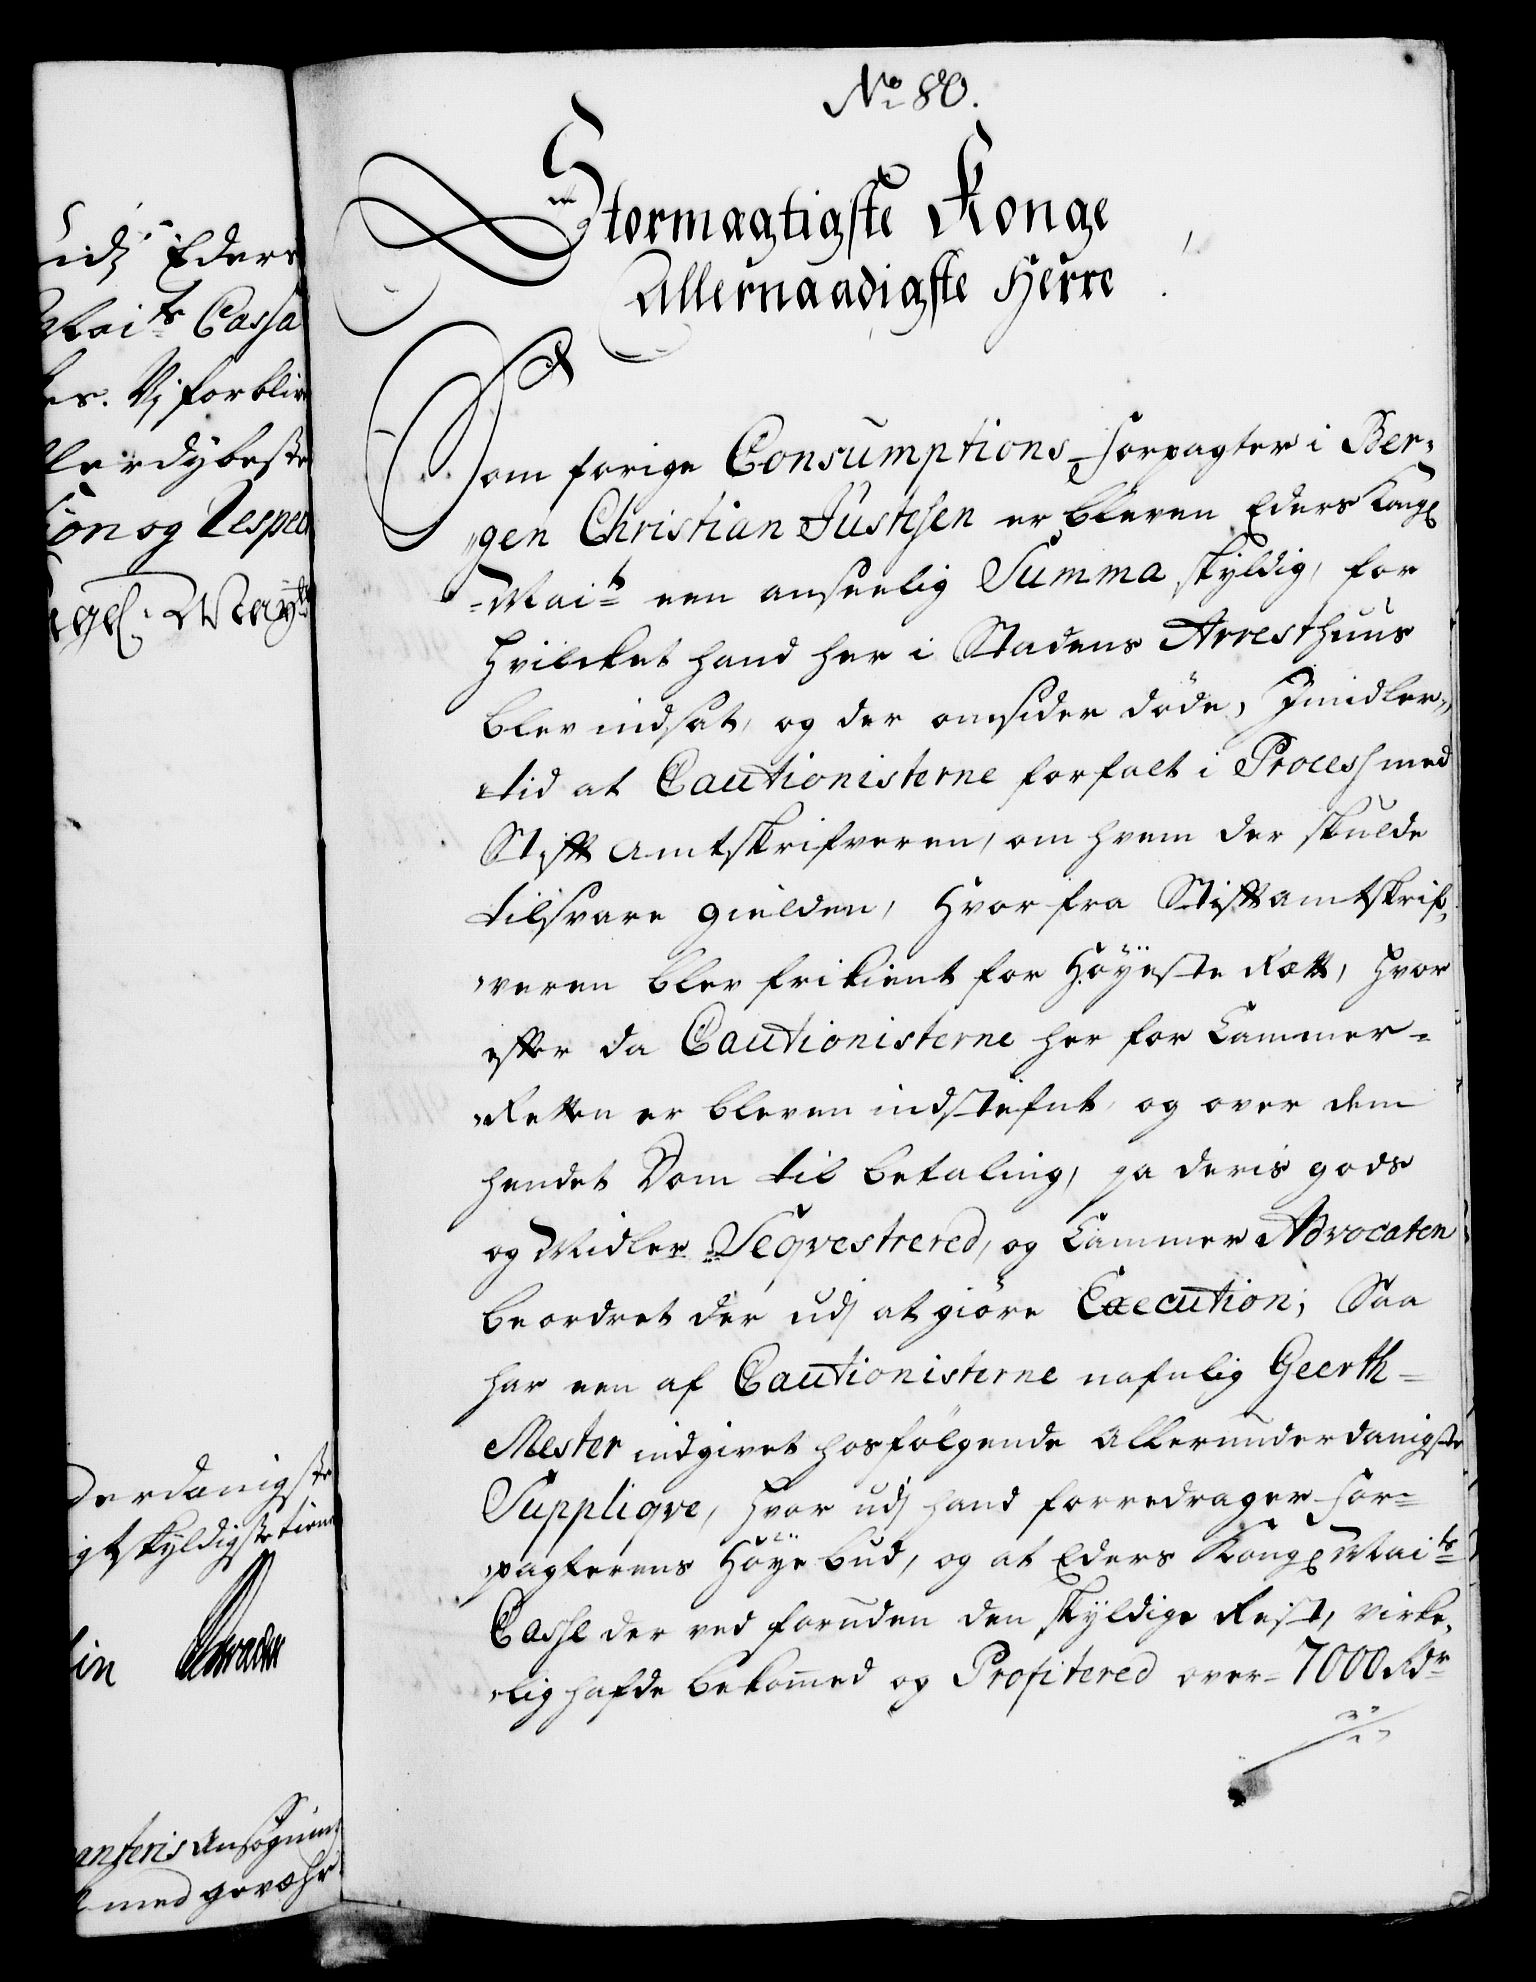 No 80.
Stormagtigste Konge
Allernaadigste Herre
Som forige Consumptions forpagter i Ber-
gen Christian Justesen er bleven Eders Kongl
Maits een anseelig Summa skyldig, for
hvilcket hand her i Stadens Arresthuus
blev indsat, og der omsider døde, Imidler-
tid at Cautionisterne forfalt i Process med
Stifft Amtskrifveren, om hvem der skulde
tilsvare gielden, hvorfra Stifftamtskrif-
veren blev frikient for Høyeste Rætt, hvor
effter da Cautionisterne her for Cammer-
Retten er bleven indstefnt, og over dem
hendet Dom til betaling, pa deris gods
og Midler Seqvestrered, og Cammer Advocaten
beordret der udj at giøre Execution; Saa
har een af Cautionisterne nafnlig Geerth
Mester indgivet hosfølgende allerunderdanigste
Suppliqve, hvor udj hand forredrager for-
pagterens Høye bud, og at Eders Kongl Maits
Casse der ved foruden den skyldige Rest, virke-
lig hafde bekommed og Profitered over 7000 Rdr
udj Eders
Maits Cassa
es. Vj forblive
llerdybeste
ion og Respect
gl: Mayts
derdanigste
gtskyldigste tiene
anteris Ansøgning
med gevæhr